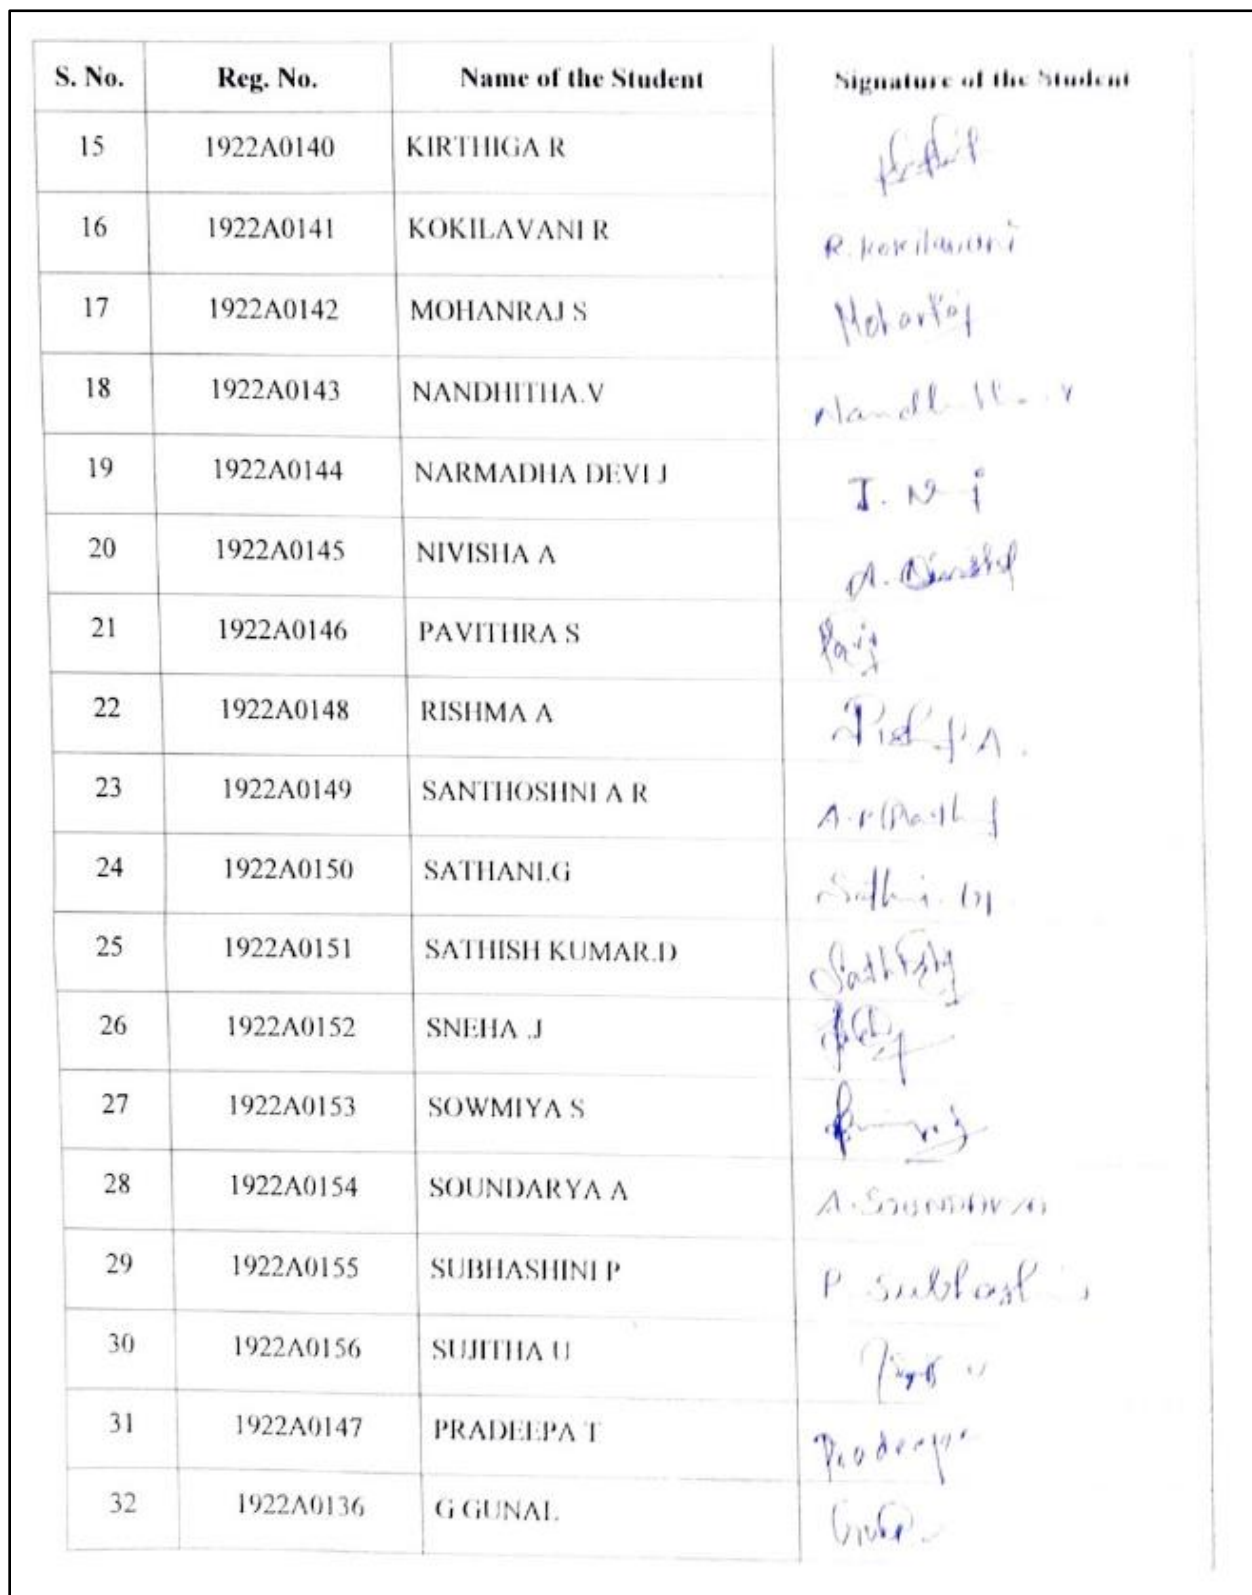 S. No. Reg. No. Name of the Student Signature of the Student
15 1922A0140 KIRTHIGA R
16 1922A0141 KOKILAVANI R R. Kokilavani
17 1922A0142 MOHANRAJ S Mohanraj
18 1922A0143 NANDHITHA.V
19 1922A0144 NARMADHA DEVI J
20 1922A0145 NIVISHA A
21 1922A0146 PAVITHRA S
22 1922A0148 RISHMA A
23 1922A0149 SANTHOSHNI A R
24 1922A0150 SATHANI.G
25 1922A0151 SATHISH KUMAR.D
26 1922A0152 SNEHA .J
27 1922A0153 SOWMIYA S
28 1922A0154 SOUNDARYA A
29 1922A0155 SUBHASHINI P
30 1922A0156 SUJITHA U
31 1922A0147 PRADEEPA T
32 1922A0136 G GUNAL